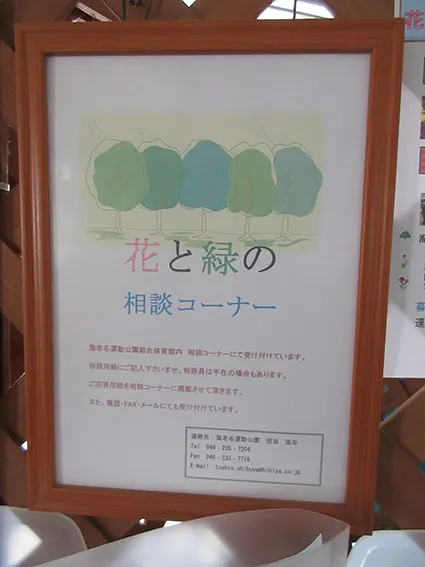 花と緑の
相談コーナー
海老名運動公園総合体育館内 相談コーナーにて受け付けています。
相談用紙にご記入下さいませ、相談員は不在の場合もあります。
ご回答用紙を相談コーナーに掲載させて頂きます。
また、電話・FAX・メールにても受け付けています。
連絡先:海老名運動公園 担当 澁谷
Tel 046-235-7204
Fax 046-233-7718
E-mail toshio.shibuya@hibiya.co.jp
花